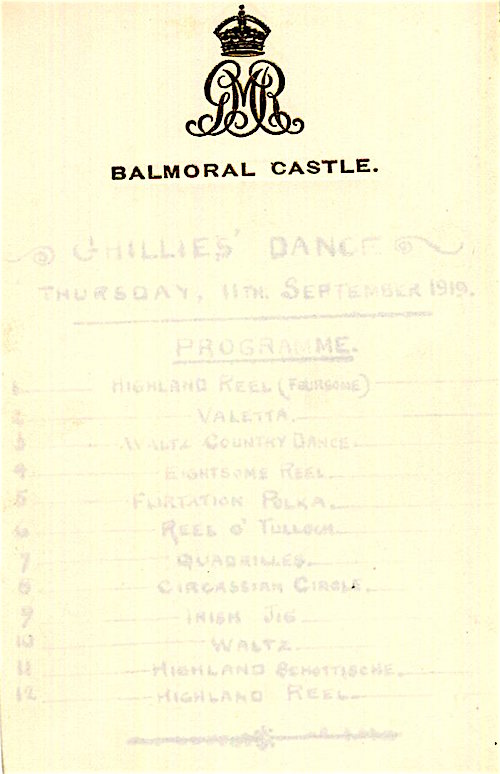 GMR
BALMORAL CASTLE.
GHILLIES' DANCE
THURSDAY, 11TH. SEPTEMBER 1919.
PROGRAMME.
1 HIGHLAND REEL (FOURSOME)
2 VALETTA.
3 WALTZ COUNTRY DANCE.
4 EIGHTSOME REEL.
5 FLIRTATION POLKA.
6 REEL O' TULLOCH.
7 QUADRILLES.
8 CIRCASSIAN CIRCLE.
9 IRISH JIG
10 WALTZ.
11 HIGHLAND SCHOTTISCHE.
12 HIGHLAND REEL.